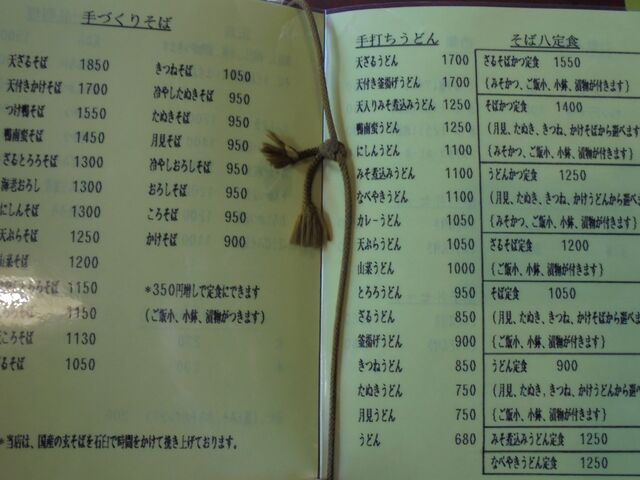 手づくりそば
天ざるそば 1850
天付きかけそば 1700
つけ鴨そば 1550
鴨南蛮そば 1450
ざるとろろそば 1300
海老おろし 1300
にしんそば 1300
天ぷらそば 1250
山菜そば 1200
やしとろろそば 1150
そば 1150
ころそば 1130
るそば 1050
きつねそば 1050
冷やしたぬきそば 950
たぬきそば 950
月見そば 950
冷やしおろしそば 950
おろしそば 950
ころそば 950
かけそば 900
*350円増しで定食にできます
(ご飯小、小鉢、漬物がつきます)
*当店は、国産の玄そばを石臼で時間をかけて挽き上げております。
手打ちうどん
天ざるうどん 1700
天付き釜揚げうどん 1700
天入りみそ煮込みうどん 1250
鴨南蛮うどん 1250
にしんうどん 1100
みそ煮込みうどん 1100
なべやきうどん 1100
カレーうどん 1050
天ぷらうどん 1050
山菜うどん 1000
とろろうどん 950
ざるうどん 850
釜揚げうどん 900
きつねうどん 850
たぬきうどん 750
月見うどん 750
うどん 680
そば八定食
ざるそばかつ定食 1550
(みそかつ、ご飯小、小鉢、漬物が付きます)
そばかつ定食 1400
(月見、たぬき、きつね、かけそばから選べま
(みそかつ、ご飯小、小鉢、漬物が付きます)
うどんかつ定食 1250
(月見、たぬき、きつね、かけうどんから選べ
(みそかつ、ご飯小、小鉢、漬物が付きます)
ざるそば定食 1200
(ご飯小、小鉢、漬物が付きます)
そば定食 1050
(月見、たぬき、きつね、かけそばから選べま
(ご飯小、小鉢、漬物が付きます)
うどん定食 900
(月見、たぬき、きつね、かけうどんから選べ
(ご飯小、小鉢、漬物が付きます)
みそ煮込みうどん定食 1250
なべやきうどん定食 1250